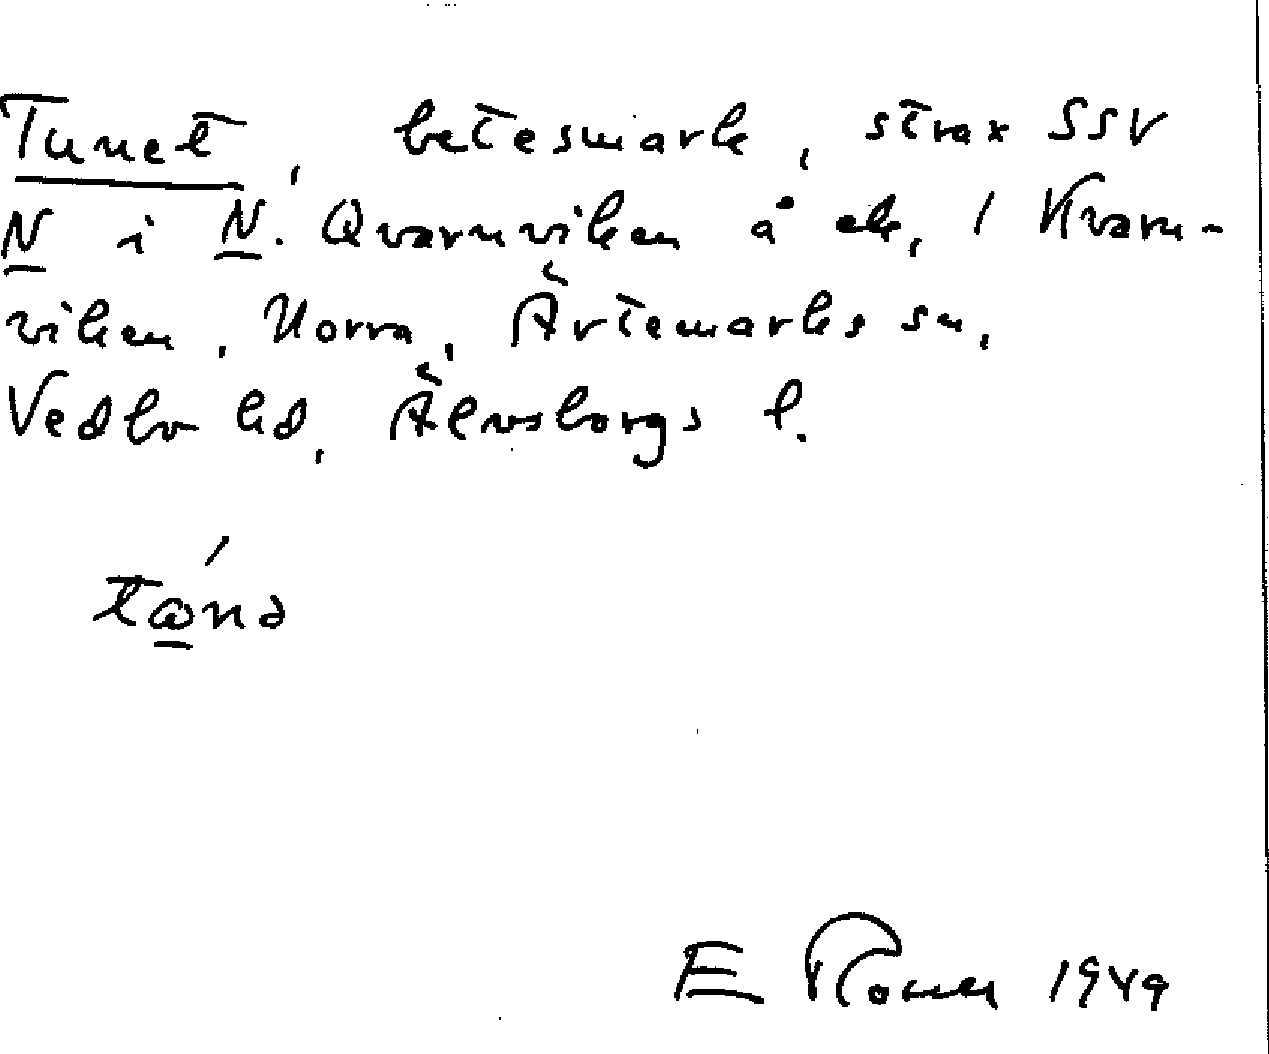 Tunet, betesmark, strax SSV
N i N. Qvarnviken å ek, / Kvarn-
viken, Norra, Ärtemarks sn,
Vedbo hd, Älvsborgs l.
E 1949